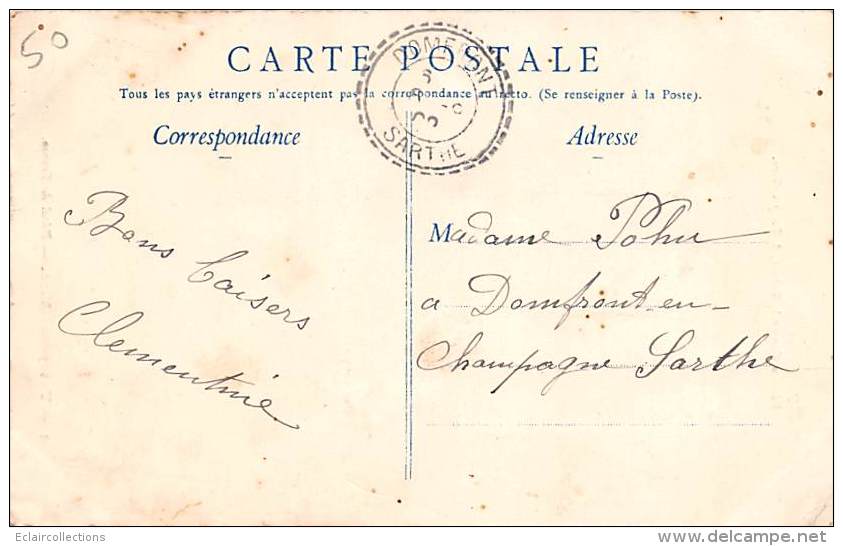 50
CARTE POSTALE
Tous les pays étrangers n'acceptent pas la correspondance au recto. (Se renseigner à la Poste).
DOMFRONT
SARTHE
Correspondance
Adresse
Bons baisers
Clementine
Madame Pohu
a Domfront-en-
Champagne Sarthe
Eclaircollections
www.delcampe.net